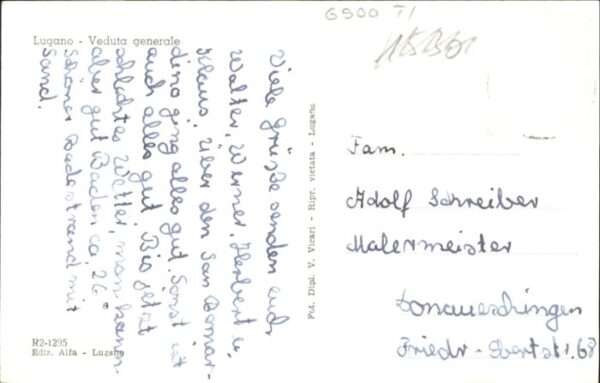 6900 T/
Lugano - Veduta generale
Viele Grüsse senden euch
Walter, Werner, Herbert u.
Klaus. Über den San Bernar-
dino ging alles gut. Sonst ist
auch alles gut. Bis jetzt
schlechtes Wetter, man kann
aber gut Baden ca 26°
schöner Badestrand mit
Sand.
R2-1295
Ediz. Alfa - Lugano
Fot. Dipl. V. Vicari - Ripr. vietata - Lugano
Fam.
Adolf Schreiber
Malermeister
Donaueschingen
Friedr-Ebertst. 68